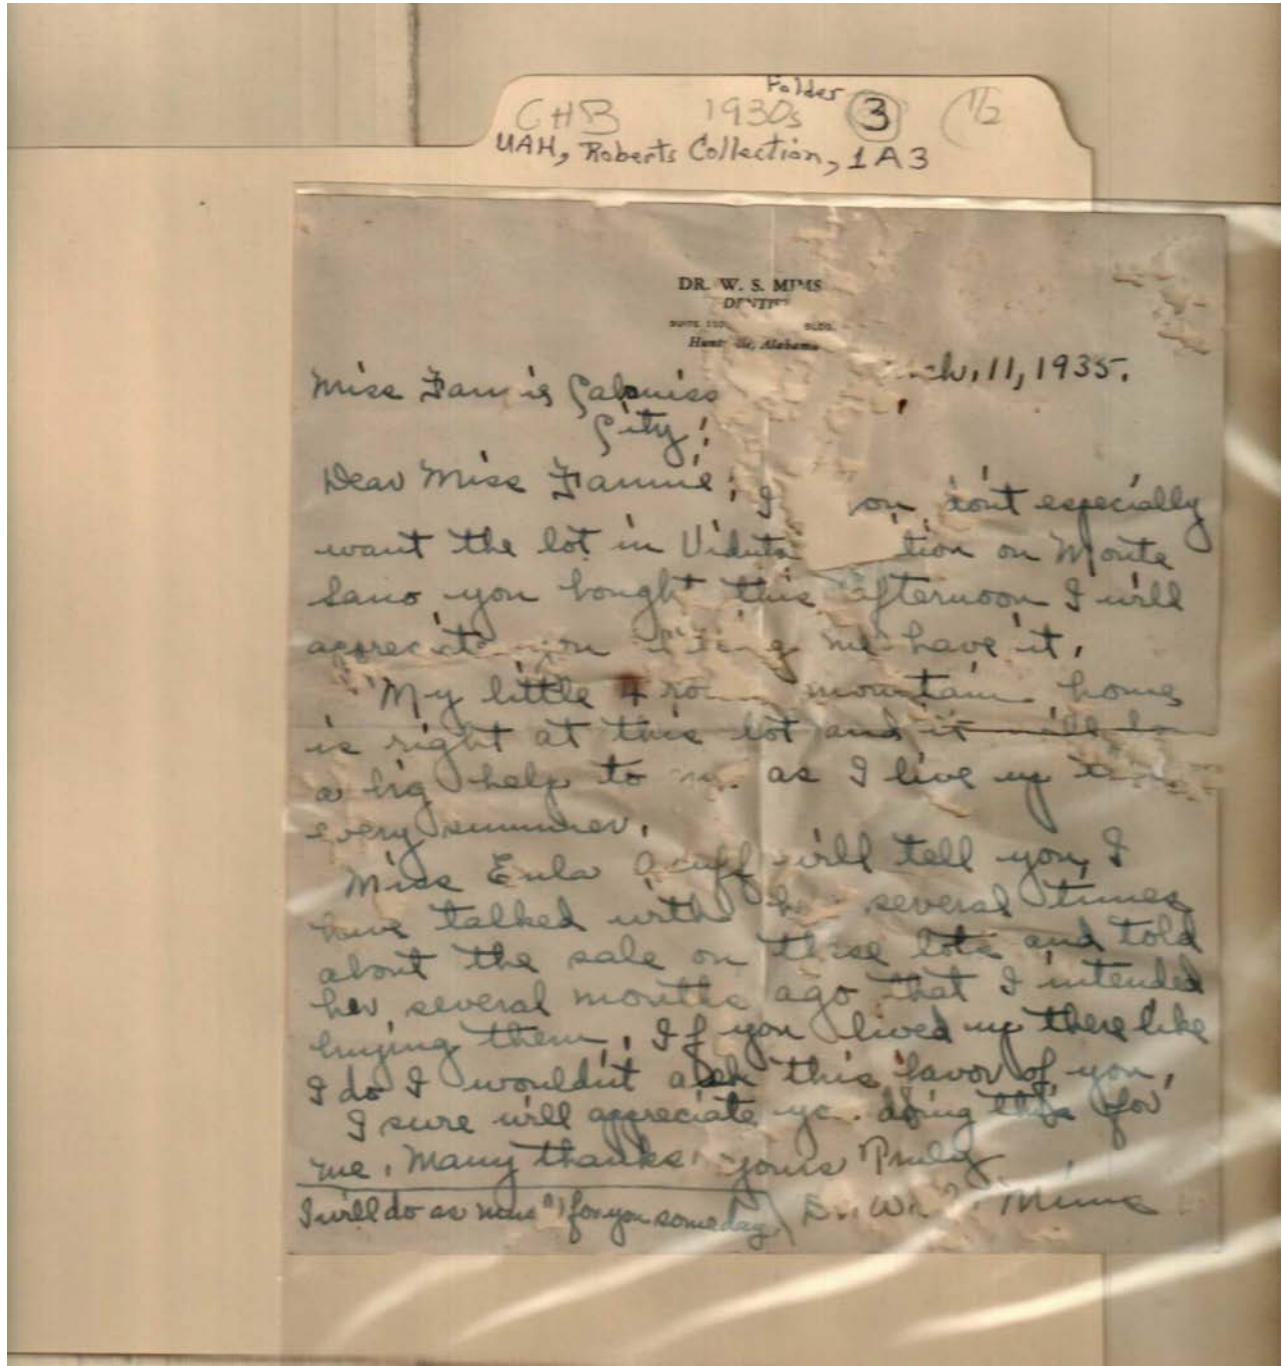 Folder
CHB 1930s 3 1/2
UAH, Roberts Collection, 1A3
DR. W. S. MIMS
DENTIST
SUITE BLDG.
Huntsville, Alabama
11, 1935.
Miss Fannie Cabaniss
City;
Dear Miss Fannie; I you dont especially
want the lot in Viduta tion on Monte
Sano you bought this afternoon I will
appreciate you letting me have it.
My little 4 room mountain home
is right at this lot and it will be
a big help to me as I live up
every summer.
Miss Eula Acuff will tell you I
have talked with her several times
about the sale on these lots and told
her several months ago that I intended
buying them. If you lived up there like
I do I wouldn't ask this favor of you.
I sure will appreciate you doing this for
me. Many thanks. yours Truly
I will do as much for you someday Dr. Wm. S. Mims